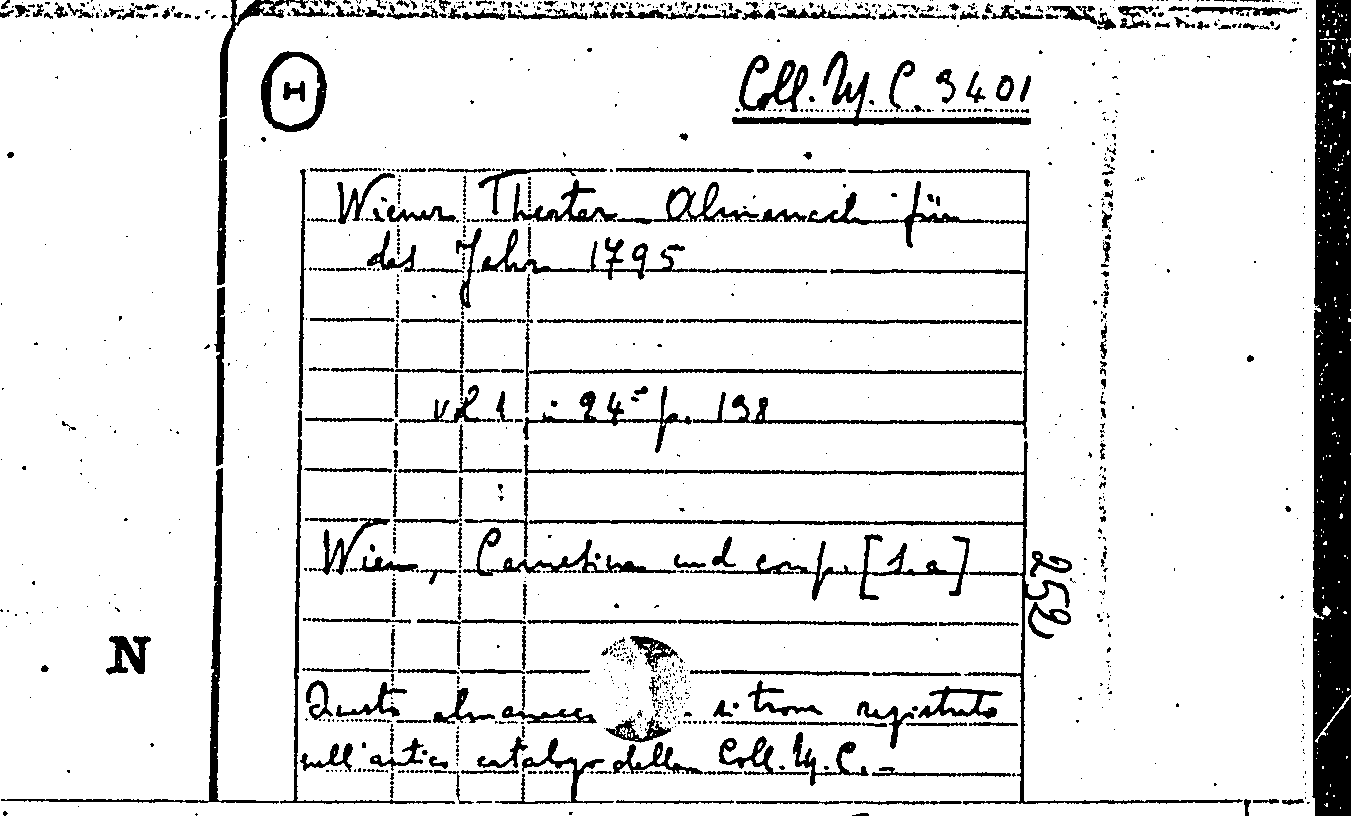 H
Coll. M. C. 3401
Wiener Theater-Almanach für
das Jahr 1795
vol 1 in 24° p. 138
Wien, Camesina und comp. [s.a]
252
N
Questo almanacco si trova registrato
sull'antico catalogo della Coll. M. C. -